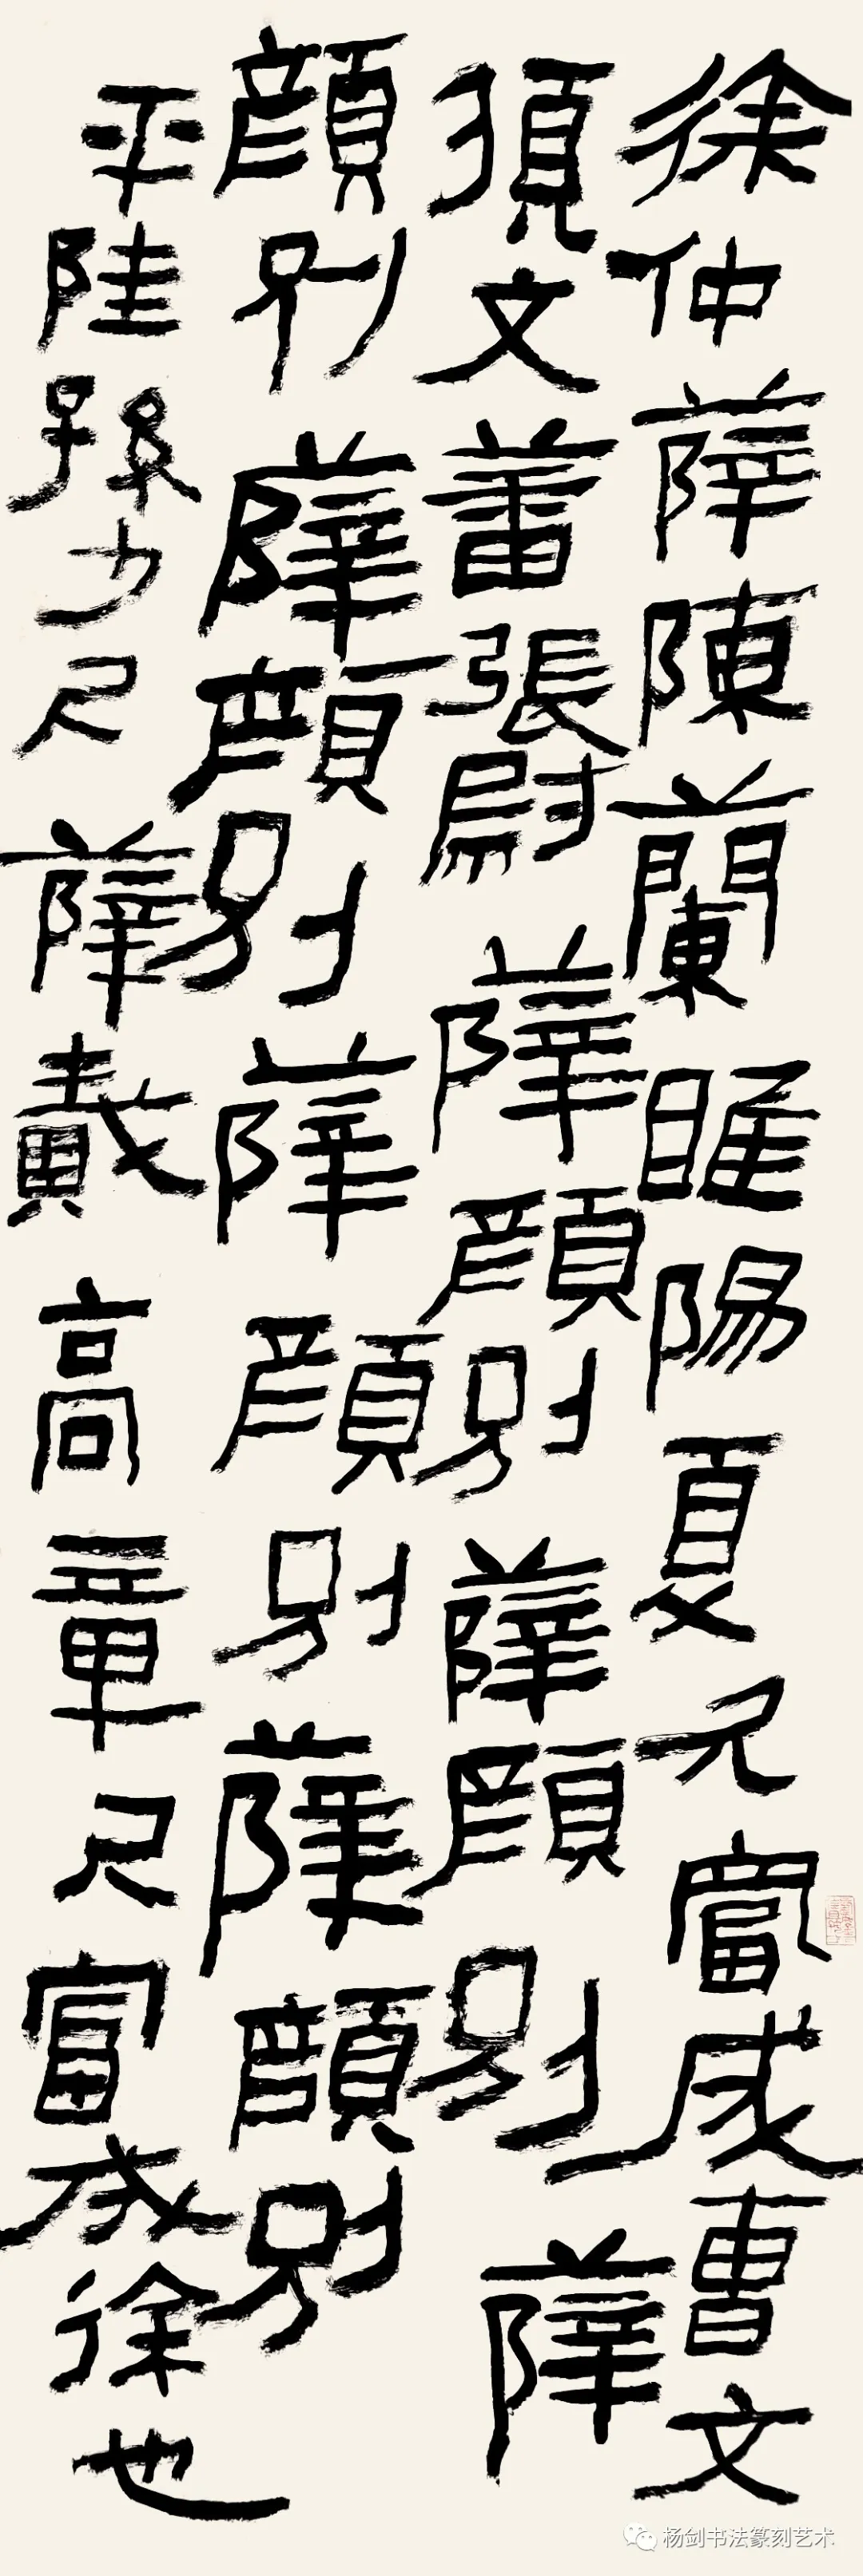 徐仲薛陳蘭睢陽夏尺富成曹文
須文蕃張尉薛顏別薛顏別薛
顏別薛顏別薛顏別薛顏別
平陸孫力尺薛戴高章尺富成徐也
杨剑书法篆刻艺术